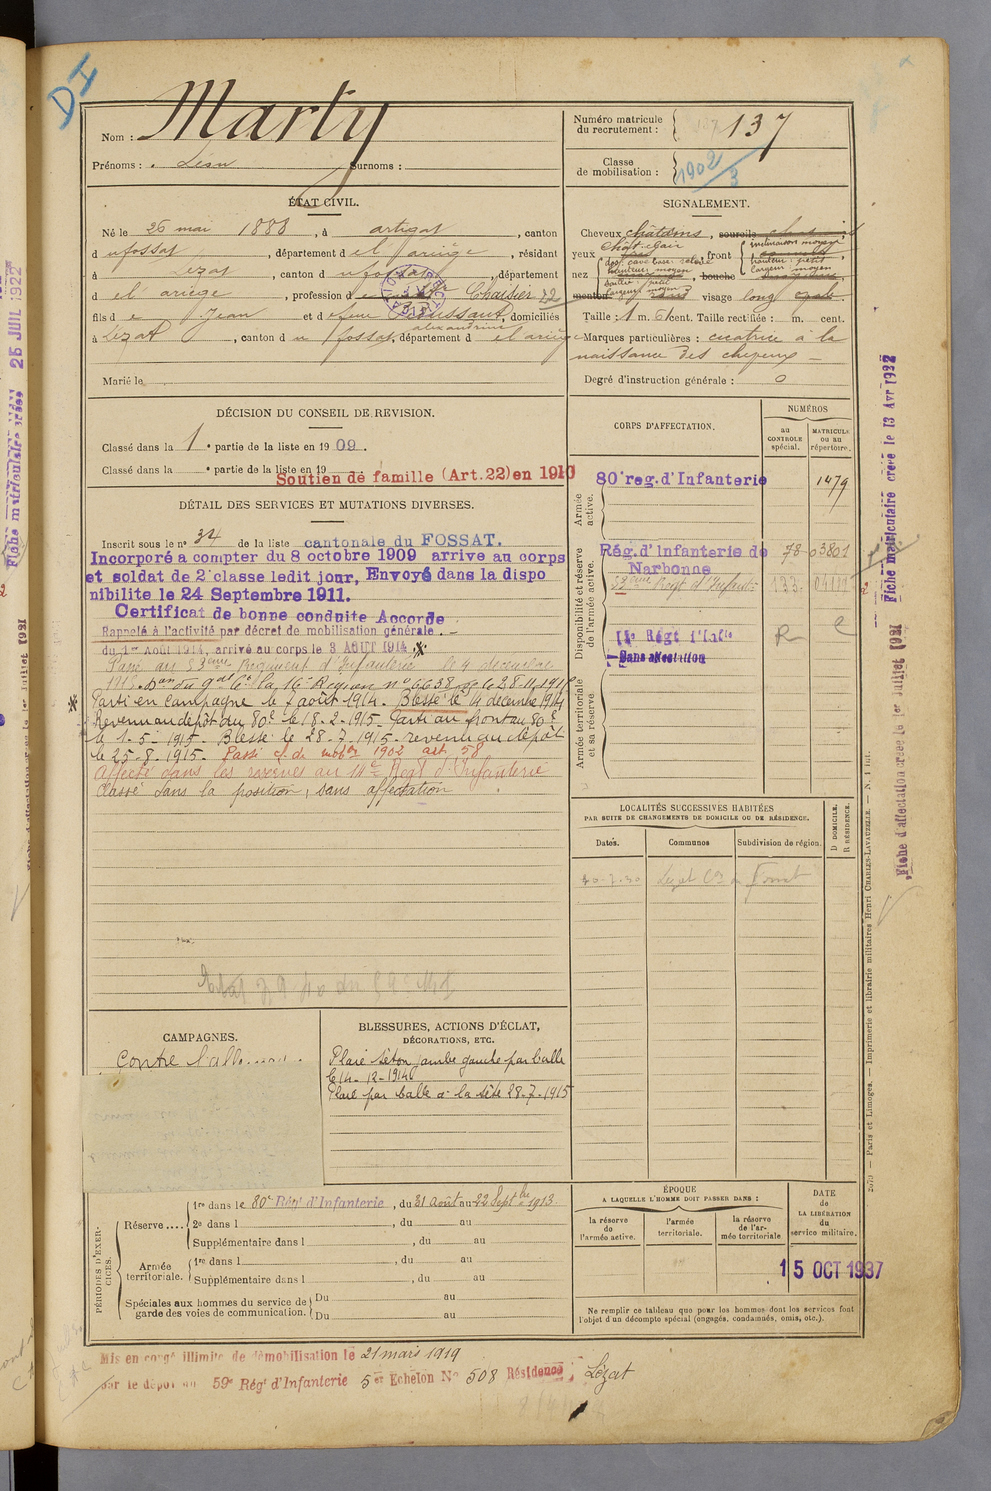 DI
Nom : Marty
Prénoms : Léon Surnoms :
Numéro matricule du recrutement : 137
Classe de mobilisation : 1902/3
ÉTAT CIVIL.
Né le 26 mai 1888, à artigat, canton
d u fossat, département d e l'ariège, résidant
à Lézat, canton d u fossat, département
d e l'ariège, profession d e Chaisier 72
fils d e Jean et d e feue Toussaint alexandrine, domiciliés
à Lézat, canton d u fossat, département d e l'ariège
Marié le
SIGNALEMENT.
Cheveux châtains, sourcils
chât. clair
yeux, front inclinaison moyen hauteur petite largeur moyen
nez dos cave base relevée hauteur moyen saillie petit largeur moyen, bouche
menton visage long ovale.
Taille : 1 m. 61 cent. Taille rectifiée : m. cent.
Marques particulières : cicatrice à la
naissance des cheveux —
Degré d'instruction générale : 0
DÉCISION DU CONSEIL DE REVISION.
Classé dans la 1e partie de la liste en 1909.
Classé dans la e partie de la liste en 19
Soutien de famille (Art. 22) en 1910
DÉTAIL DES SERVICES ET MUTATIONS DIVERSES.
Inscrit sous le n° 34 de la liste cantonale du FOSSAT.
Incorporé a compter du 8 octobre 1909 arrive au corps
et soldat de 2e classe ledit jour, Envoyé dans la dispo
nibilite le 24 Septembre 1911.
Certificat de bonne conduite Accorde
Rappelé à l'activité par décret de mobilisation générale. —
du 1er Août 1914, arrivé au corps le 3 AOUT 1914
Passé au 53eme Régiment d'Infanterie le 4 décembre
1918. Don du gal Ct la 16e Région n° 6638 du 28-11-1918
Parti en campagne le 7 août 1914. Blessé le 14 décembre 1914
Revenu au dépôt du 80e le 18-2-1915. Parti au front au 80e
le 1-5-1915. Blessé le 28-7-1915. revenu au dépôt
le 25-8-1915. Passé cl. de mobon 1902 art 58
Affecté dans les reserves au 14e Regt d'Infanterie
Classé dans la position, sans affectation
CORPS D'AFFECTATION.
NUMÉROS
au CONTROLE spécial.
MATRICULE ou au répertoire.
Armée active.
80e reg. d'Infanterie 1479
Disponibilité et réserve de l'armée active.
Rég. d'Infanterie de Narbonne 78 03801
53eme Regt d'Infant 133
Régt d'Infie
Sans affectation
Armée territoriale et sa réserve
LOCALITÉS SUCCESSIVES HABITÉES
PAR SUITE DE CHANGEMENTS DE DOMICILE OU DE RÉSIDENCE.
Dates. Communes Subdivision de région. D DOMICILE. R RÉSIDENCE.
Lézat
CAMPAGNES.
Contre l'allemagne.
BLESSURES, ACTIONS D'ÉCLAT,
DÉCORATIONS, ETC.
Plaie séton jambe gauche par balle
le 14-12-1914
Plaie par balle à la tête 28-7-1915
PÉRIODES D'EXERCICES.
Réserve....
1re dans le 80e Régt d'Infanterie, du 31 Août au 22 Septbre 1913.
2e dans l , du au
Supplémentaire dans l , du au
Armée territoriale.
1re dans l , du au
Supplémentaire dans l , du au
Spéciales aux hommes du service de garde des voies de communication.
Du au
Du au
ÉPOQUE
A LAQUELLE L'HOMME DOIT PASSER DANS :
la réserve de l'armée active.
l'armée territoriale.
la réserve de l'armée territoriale
DATE de LA LIBÉRATION du service militaire.
15 OCT 1937
Ne remplir ce tableau que pour les hommes dont les services font
l'objet d'un décompte spécial (engagés, condamnés, omis, etc.).
Mis en congé illimité de démobilisation le 21 mars 1919
par le dépôt du 59e Régt d'Infanterie 5er Echelon No 508 Résidence Lézat
Fiche matriculaire créée le 13 Avr 1932
Fiche d'affectation créée le 1er Juillet 1931
2079 — Paris et Limoges. — Imprimerie et librairie militaires Henri CHARLES-LAVAUZELLE. — N. 1 int.
Fiche matriculaire créée 25 JUIL 1922